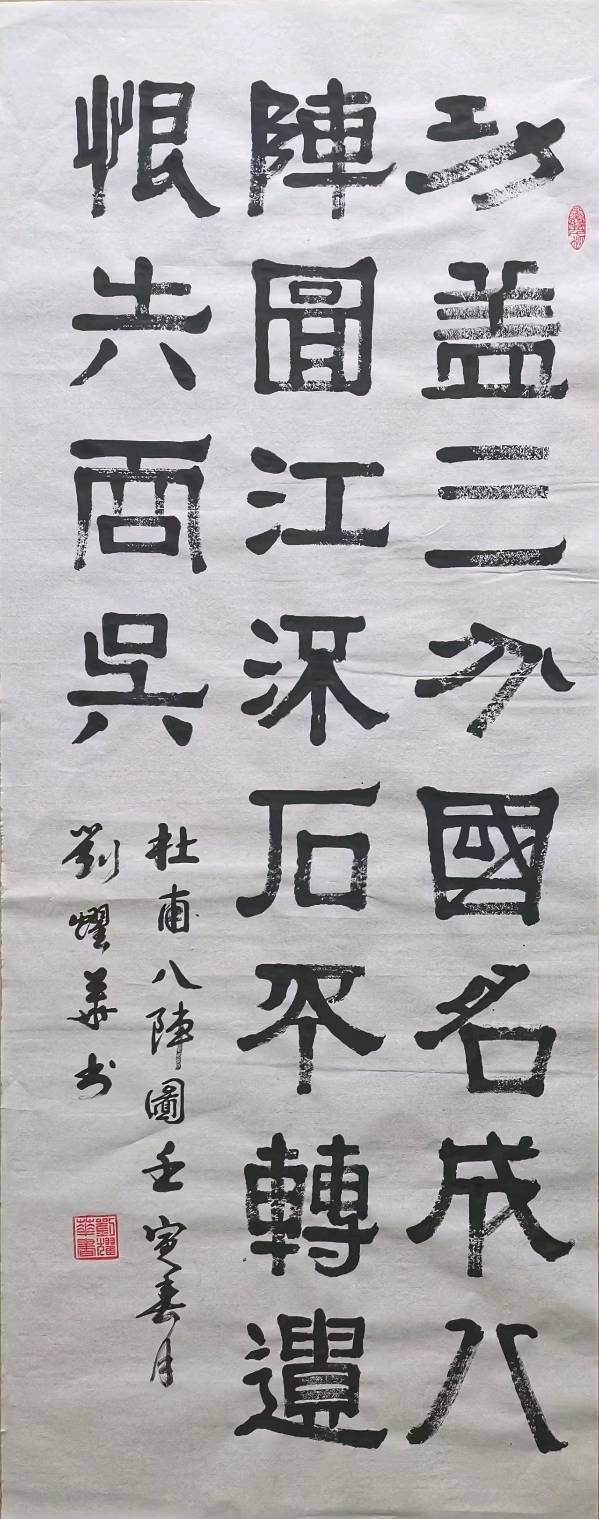 功盖三分國名成八
陣圖江流石不轉遺
恨失吞吳
杜甫八陣圖壬寅春月
劉耀華书
劉耀華書